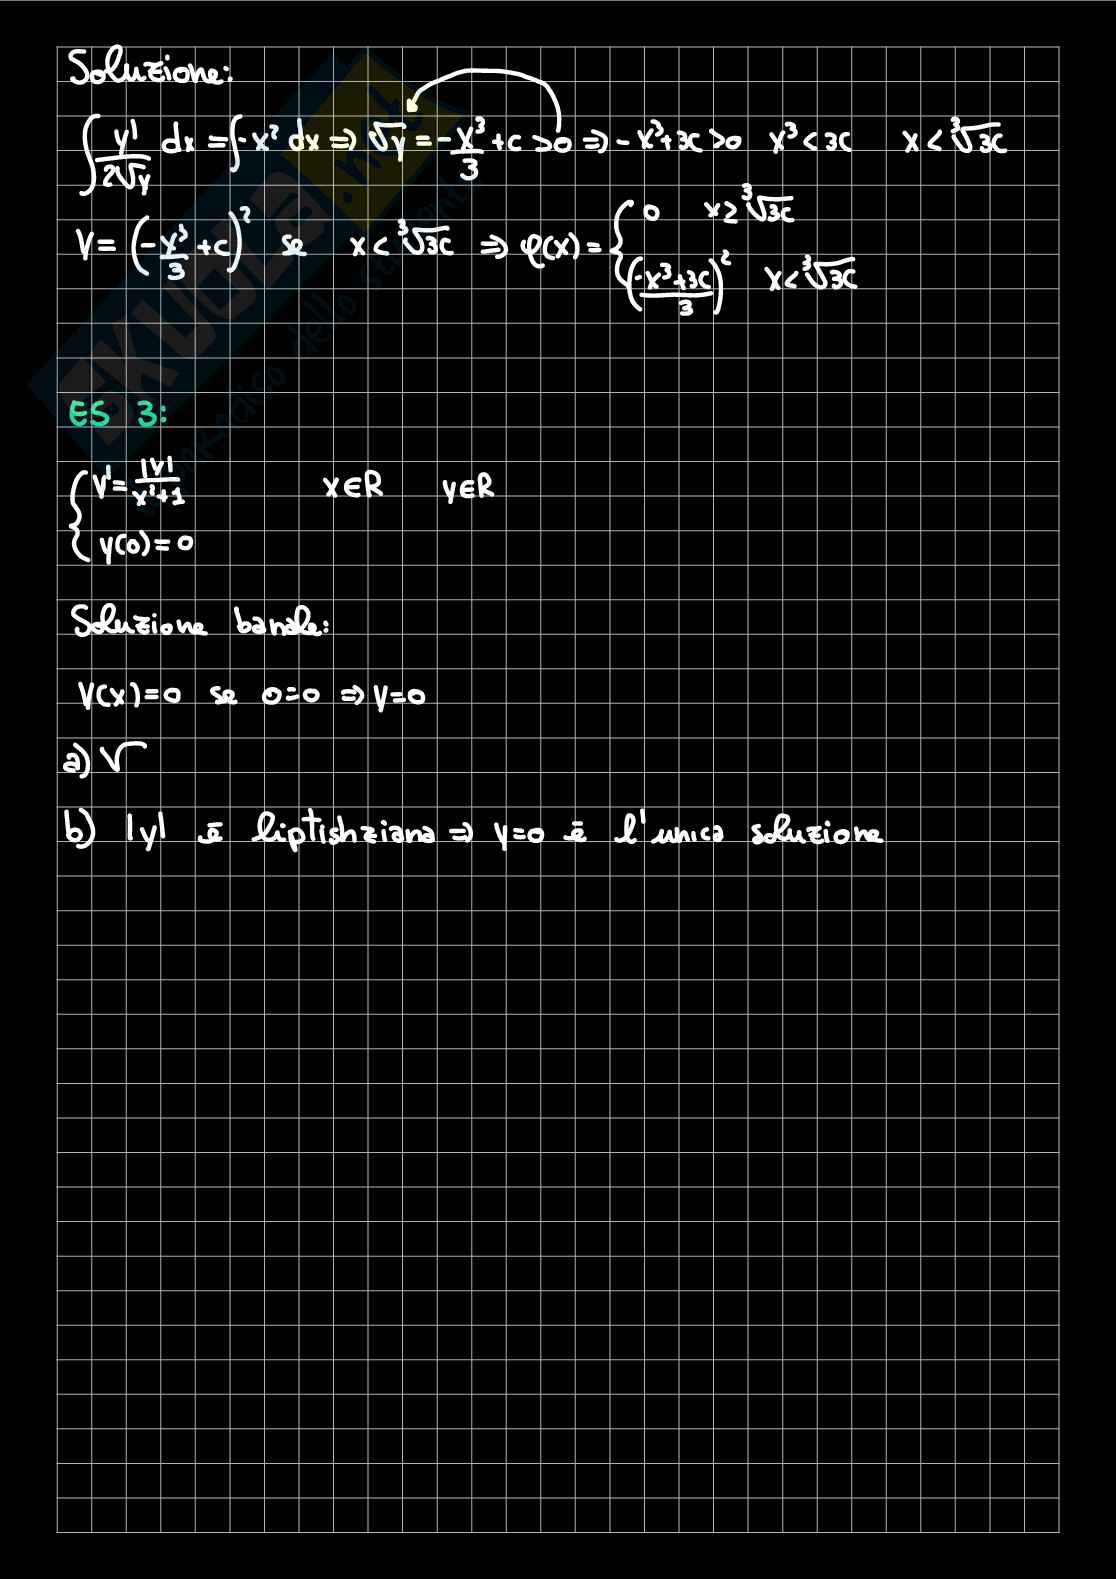 Soluzione:
∫ y'/(2√y) dx = ∫ -x² dx ⇒ √y = -x³/3 + c > 0 ⇒ -x³+3c > 0 x³ < 3c x < ³√3c
y = (-x³/3 + c)² se x < ³√3c ⇒ φ(x) = { 0 x ≥ ³√3c
((-x³+3c)/3)² x < ³√3c
ES 3:
{ y' = |y|/(x²+1) x∈R y∈R
y(0) = 0
Soluzione banale:
y(x)=0 se 0=0 ⇒ y=0
a) √
b) |y| è liptishziana ⇒ y=0 è l'unica soluzione
SKUOLA.net